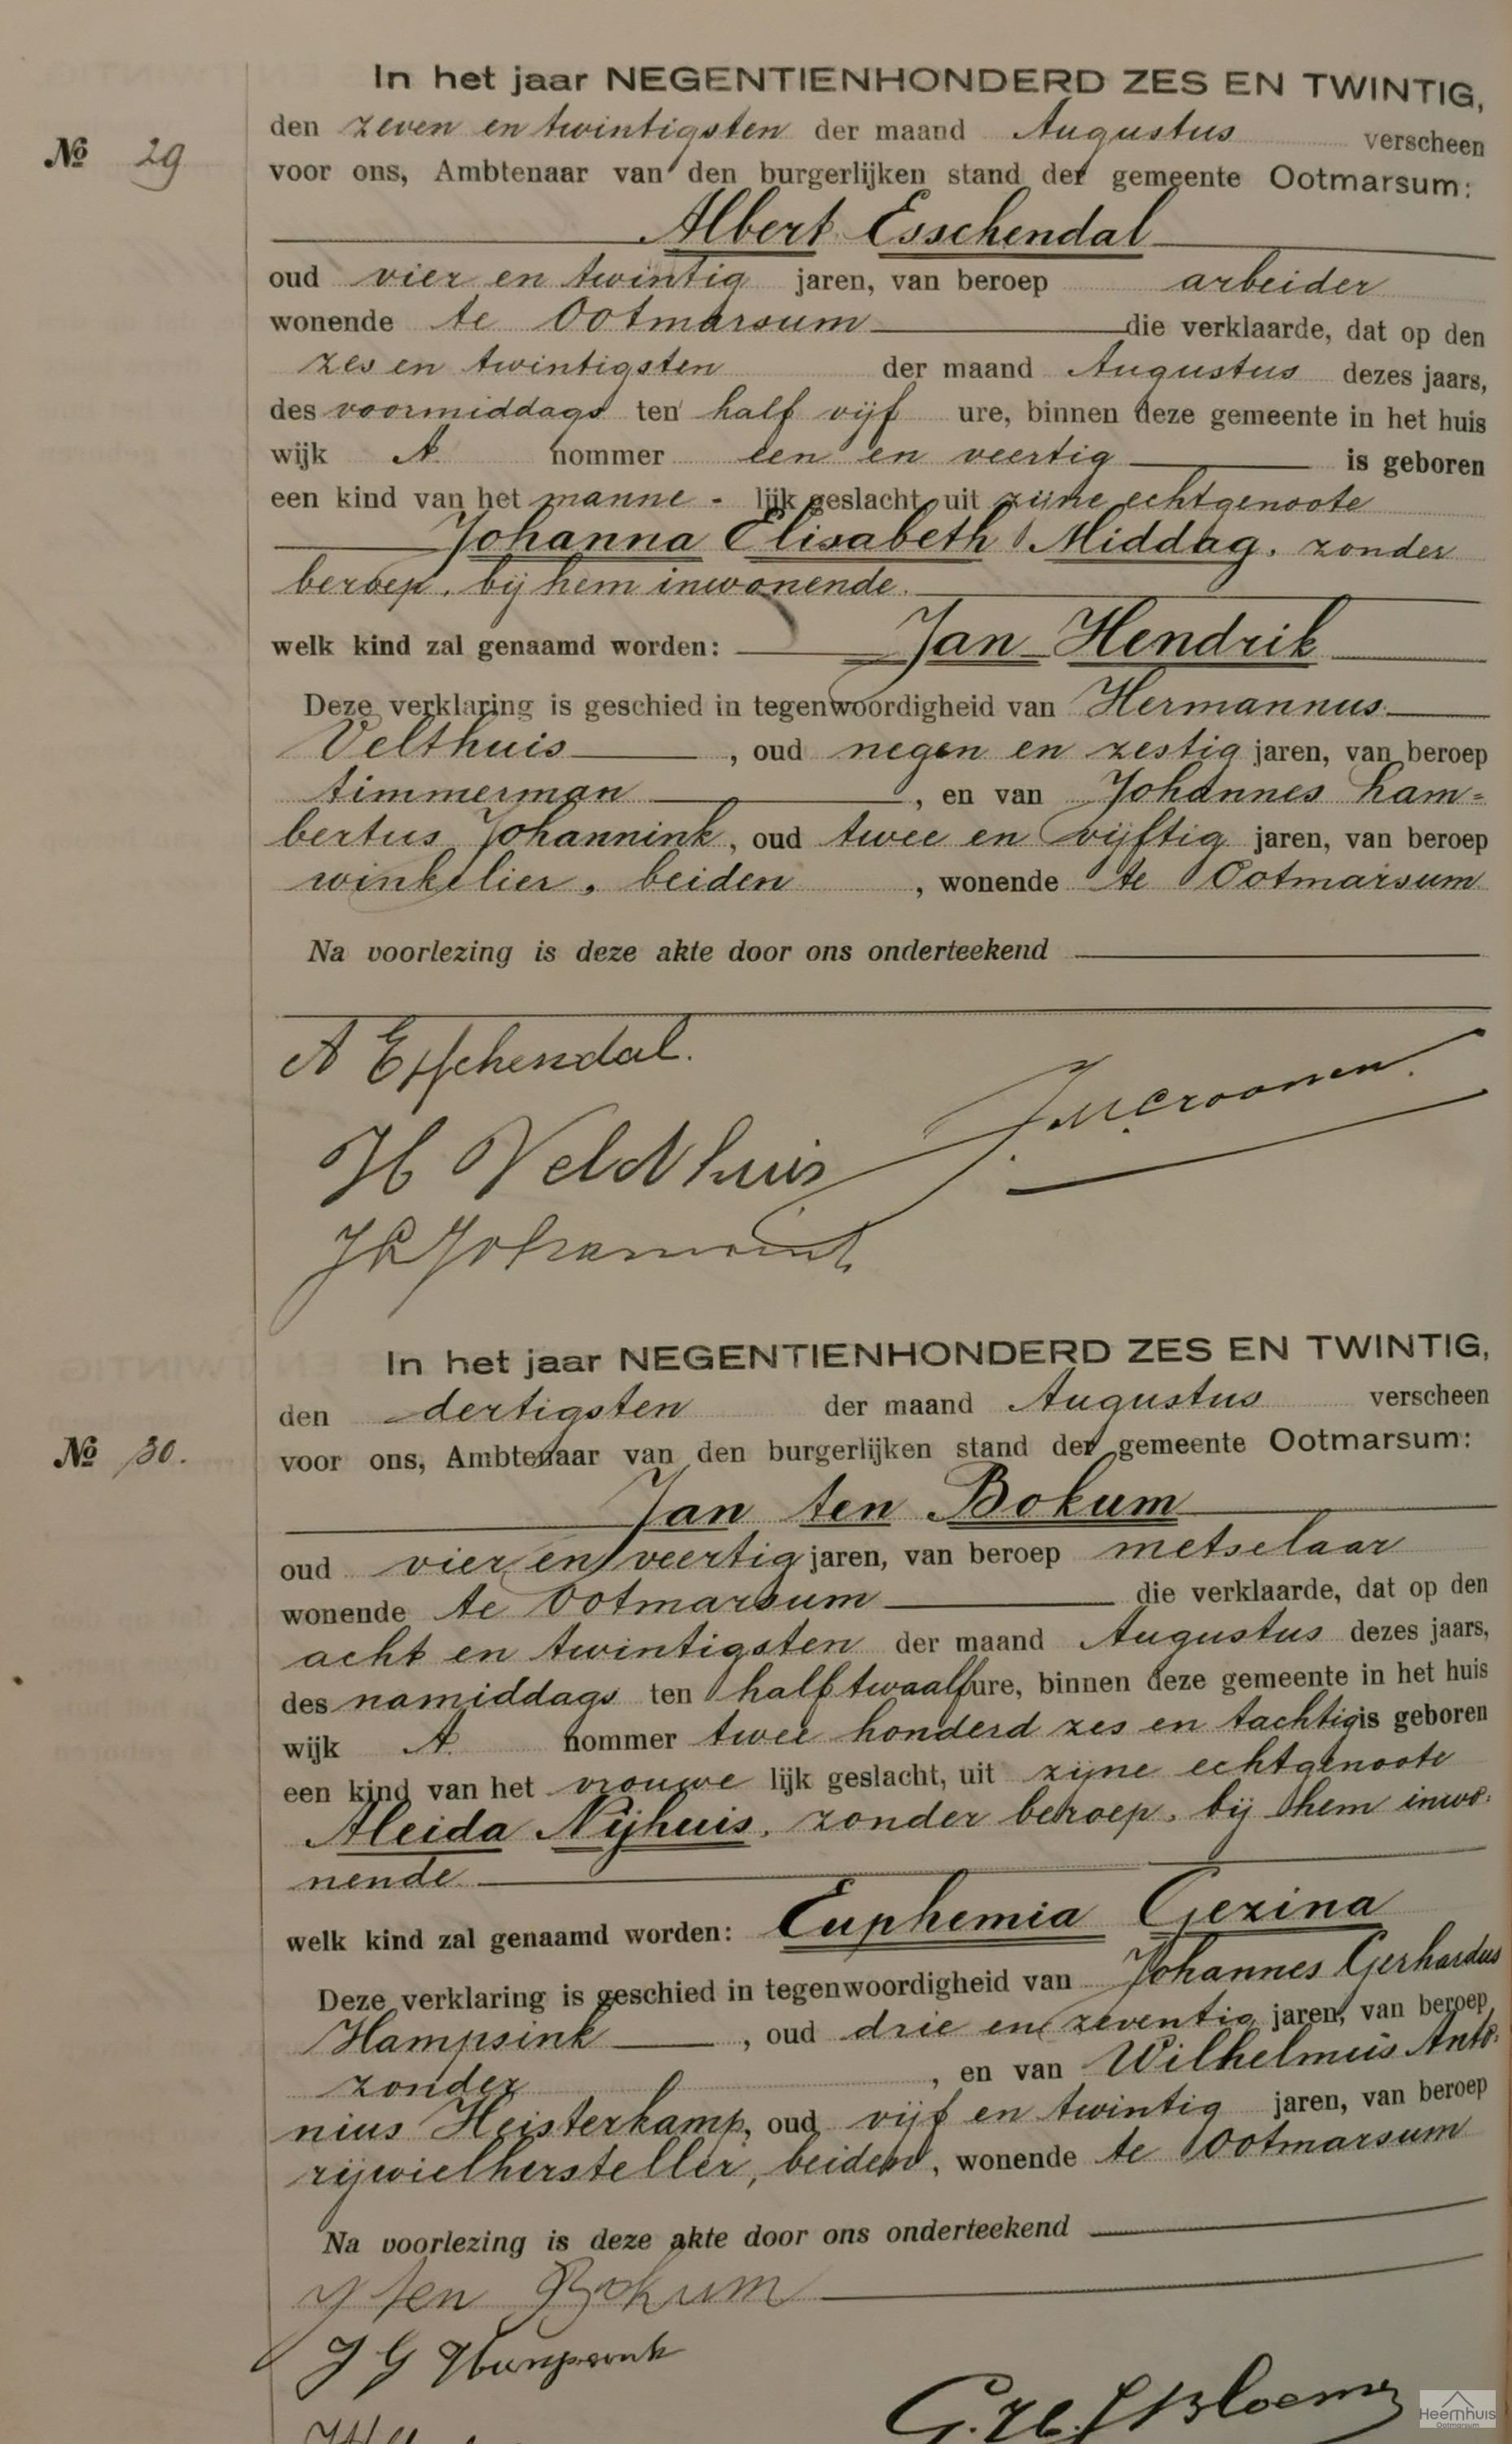 In het jaar NEGENTIENHONDERD ZES EN TWINTIG,
den zeven en twintigsten der maand Augustus verscheen
No 29
voor ons, Ambtenaar van den burgerlijken stand der gemeente Ootmarsum:
Albert Esschendal
oud vier en twintig jaren, van beroep arbeider
wonende te Ootmarsum die verklaarde, dat op den
zes en twintigsten der maand Augustus dezes jaars,
des voormiddags ten half vijf ure, binnen deze gemeente in het huis
wijk A. nommer een en veertig is geboren
een kind van het manne - lijk geslacht, uit zijne echtgenoote
Johanna Elisabeth Middag, zonder
beroep, bij hem inwonende.
welk kind zal genaamd worden: Jan Hendrik
Deze verklaring is geschied in tegenwoordigheid van Hermannus
Velthuis, oud negen en zestig jaren, van beroep
timmerman, en van Johannes Lam=
bertus Johannink, oud twee en vijftig jaren, van beroep
winkelier, beiden, wonende te Ootmarsum
Na voorlezing is deze akte door ons onderteekend
A Esschendal.
H Veldhuis
In het jaar NEGENTIENHONDERD ZES EN TWINTIG,
den dertigsten der maand Augustus verscheen
No 30.
voor ons, Ambtenaar van den burgerlijken stand der gemeente Ootmarsum:
Jan ten Bokum
oud vier en veertig jaren, van beroep metselaar
wonende te Ootmarsum die verklaarde, dat op den
acht en twintigsten der maand Augustus dezes jaars,
des namiddags ten half twaalf ure, binnen deze gemeente in het huis
wijk A. nommer twee honderd zes en tachtig is geboren
een kind van het vrouwe lijk geslacht, uit zijne echtgenoote
Aleida Nijhuis, zonder beroep, bij hem inwo=
nende
welk kind zal genaamd worden: Euphemia Gezina
Deze verklaring is geschied in tegenwoordigheid van Johannes Gerhardus
Hampsink, oud drie en zeventig jaren, van beroep
zonder, en van Wilhelmus Anto=
nius Heisterkamp, oud vijf en twintig jaren, van beroep
rijwielhersteller, beiden, wonende te Ootmarsum
Na voorlezing is deze akte door ons onderteekend
J ten Bokum
J G Hampsink
Heemhuis
Ootmarsum